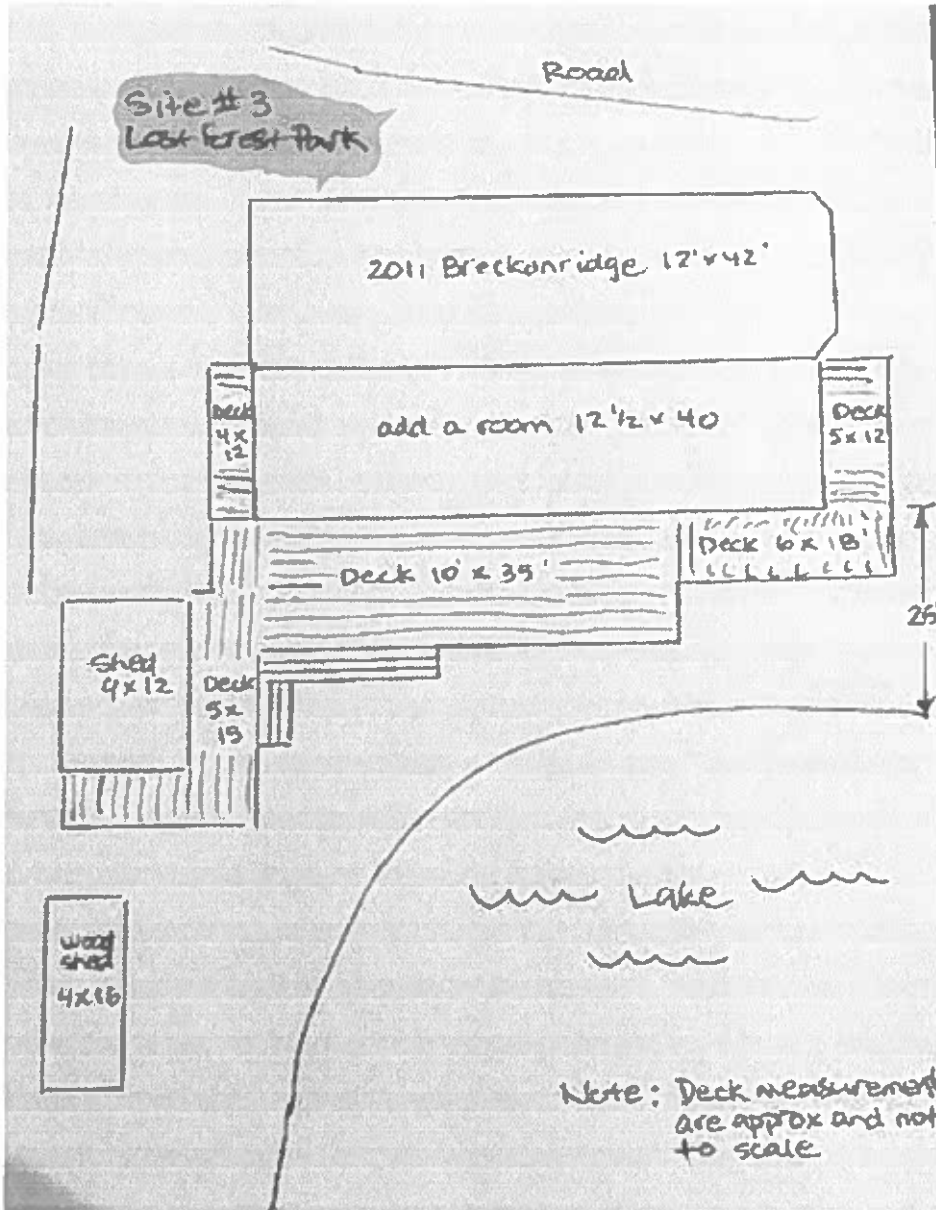 Road
Site # 3
Lost Forest Park
2011 Breckonridge 12' x 42'
Deck
4 x
12
add a room 12 1/2 x 40
Deck
5 x 12
Deck 10' x 35'
Deck 6 x 18'
25'
Shed
9 x 12
Deck
5 x
15
Lake
wood
shed
4 x 16
Note: Deck measurement
are approx and not
to scale